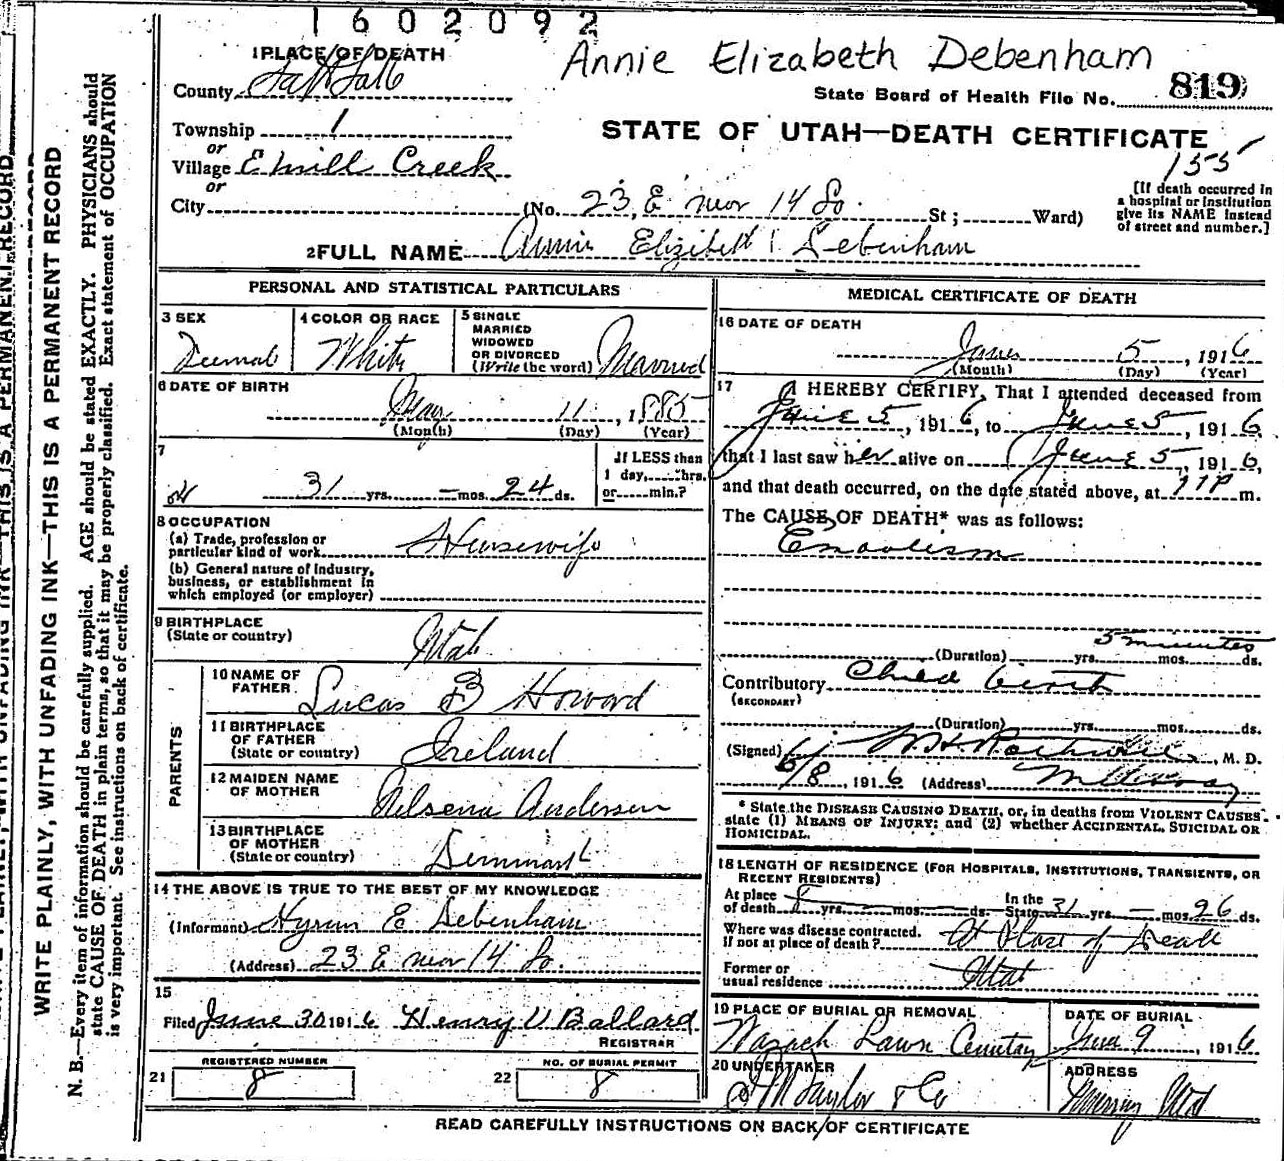 1602092
Annie Elizabeth Debenham
1 PLACE OF DEATH
County Salt Lake
State Board of Health File No. 819
Township 1
STATE OF UTAH—DEATH CERTIFICATE
155
or
Village E Mill Creek
or
City (No. 23 E near 14 So. St; Ward)
[If death occurred in
a hospital or institution
give its NAME instead
of street and number.]
2 FULL NAME Annie Elizibeth Debenham
PERSONAL AND STATISTICAL PARTICULARS
3 SEX
4 COLOR OR RACE White
5 SINGLE
MARRIED
WIDOWED
OR DIVORCED
(Write the word) Married
6 DATE OF BIRTH
May 11, 1885
(Month) (Day) (Year)
7
31 yrs. — mos. 24 ds.
If LESS than
1 day, hrs.
or min.?
8 OCCUPATION
(a) Trade, profession or
particular kind of work Housewife
(b) General nature of industry,
business, or establishment in
which employed (or employer)
9 BIRTHPLACE
(State or country) Utah
PARENTS
10 NAME OF
FATHER Lucas B Howard
11 BIRTHPLACE
OF FATHER
(State or country) Ireland
12 MAIDEN NAME
OF MOTHER Nilsena Andersen
13 BIRTHPLACE
OF MOTHER
(State or country) Denmark
14 THE ABOVE IS TRUE TO THE BEST OF MY KNOWLEDGE
(Informant) Hyrum E Debenham
(Address) 23 E near 14 So.
15
Filed June 30 1916 Henry V Ballard
REGISTRAR
21 REGISTERED NUMBER 8
22 NO. OF BURIAL PERMIT 8
MEDICAL CERTIFICATE OF DEATH
16 DATE OF DEATH
June 5, 1916
(Month) (Day) (Year)
17 I HEREBY CERTIFY, That I attended deceased from
June 5, 1916, to June 5, 1916,
that I last saw her alive on June 5, 1916,
and that death occurred, on the date stated above, at 11P m.
The CAUSE OF DEATH* was as follows:
Embolism
(Duration) yrs. mos. ds. 5 minutes
Contributory Child birth
(SECONDARY)
(Duration) yrs. mos. ds.
(Signed) W. H. Rothwell, M. D.
6/8, 1916 (Address) Murray
* State the DISEASE CAUSING DEATH, or, in deaths from VIOLENT CAUSES,
state (1) MEANS OF INJURY; and (2) whether ACCIDENTAL, SUICIDAL OR
HOMICIDAL.
18 LENGTH OF RESIDENCE (FOR HOSPITALS, INSTITUTIONS, TRANSIENTS, OR
RECENT RESIDENTS)
At place
of death 8 yrs. mos. ds. In the State 31 yrs. — mos. 26 ds.
Where was disease contracted,
if not at place of death? At Place of Death
Former or
usual residence Utah
19 PLACE OF BURIAL OR REMOVAL
Wasach Lawn Cemetery
DATE OF BURIAL
June 9, 1916
20 UNDERTAKER
Taylor & Co
ADDRESS
Murray Utah
READ CAREFULLY INSTRUCTIONS ON BACK OF CERTIFICATE
WRITE PLAINLY, WITH UNFADING INK—THIS IS A PERMANENT RECORD
N. B.—Every item of information should be carefully supplied. AGE should be stated EXACTLY. PHYSICIANS should
state CAUSE OF DEATH in plain terms, so that it may be properly classified. Exact statement of OCCUPATION
is very important. See instructions on back of certificate.